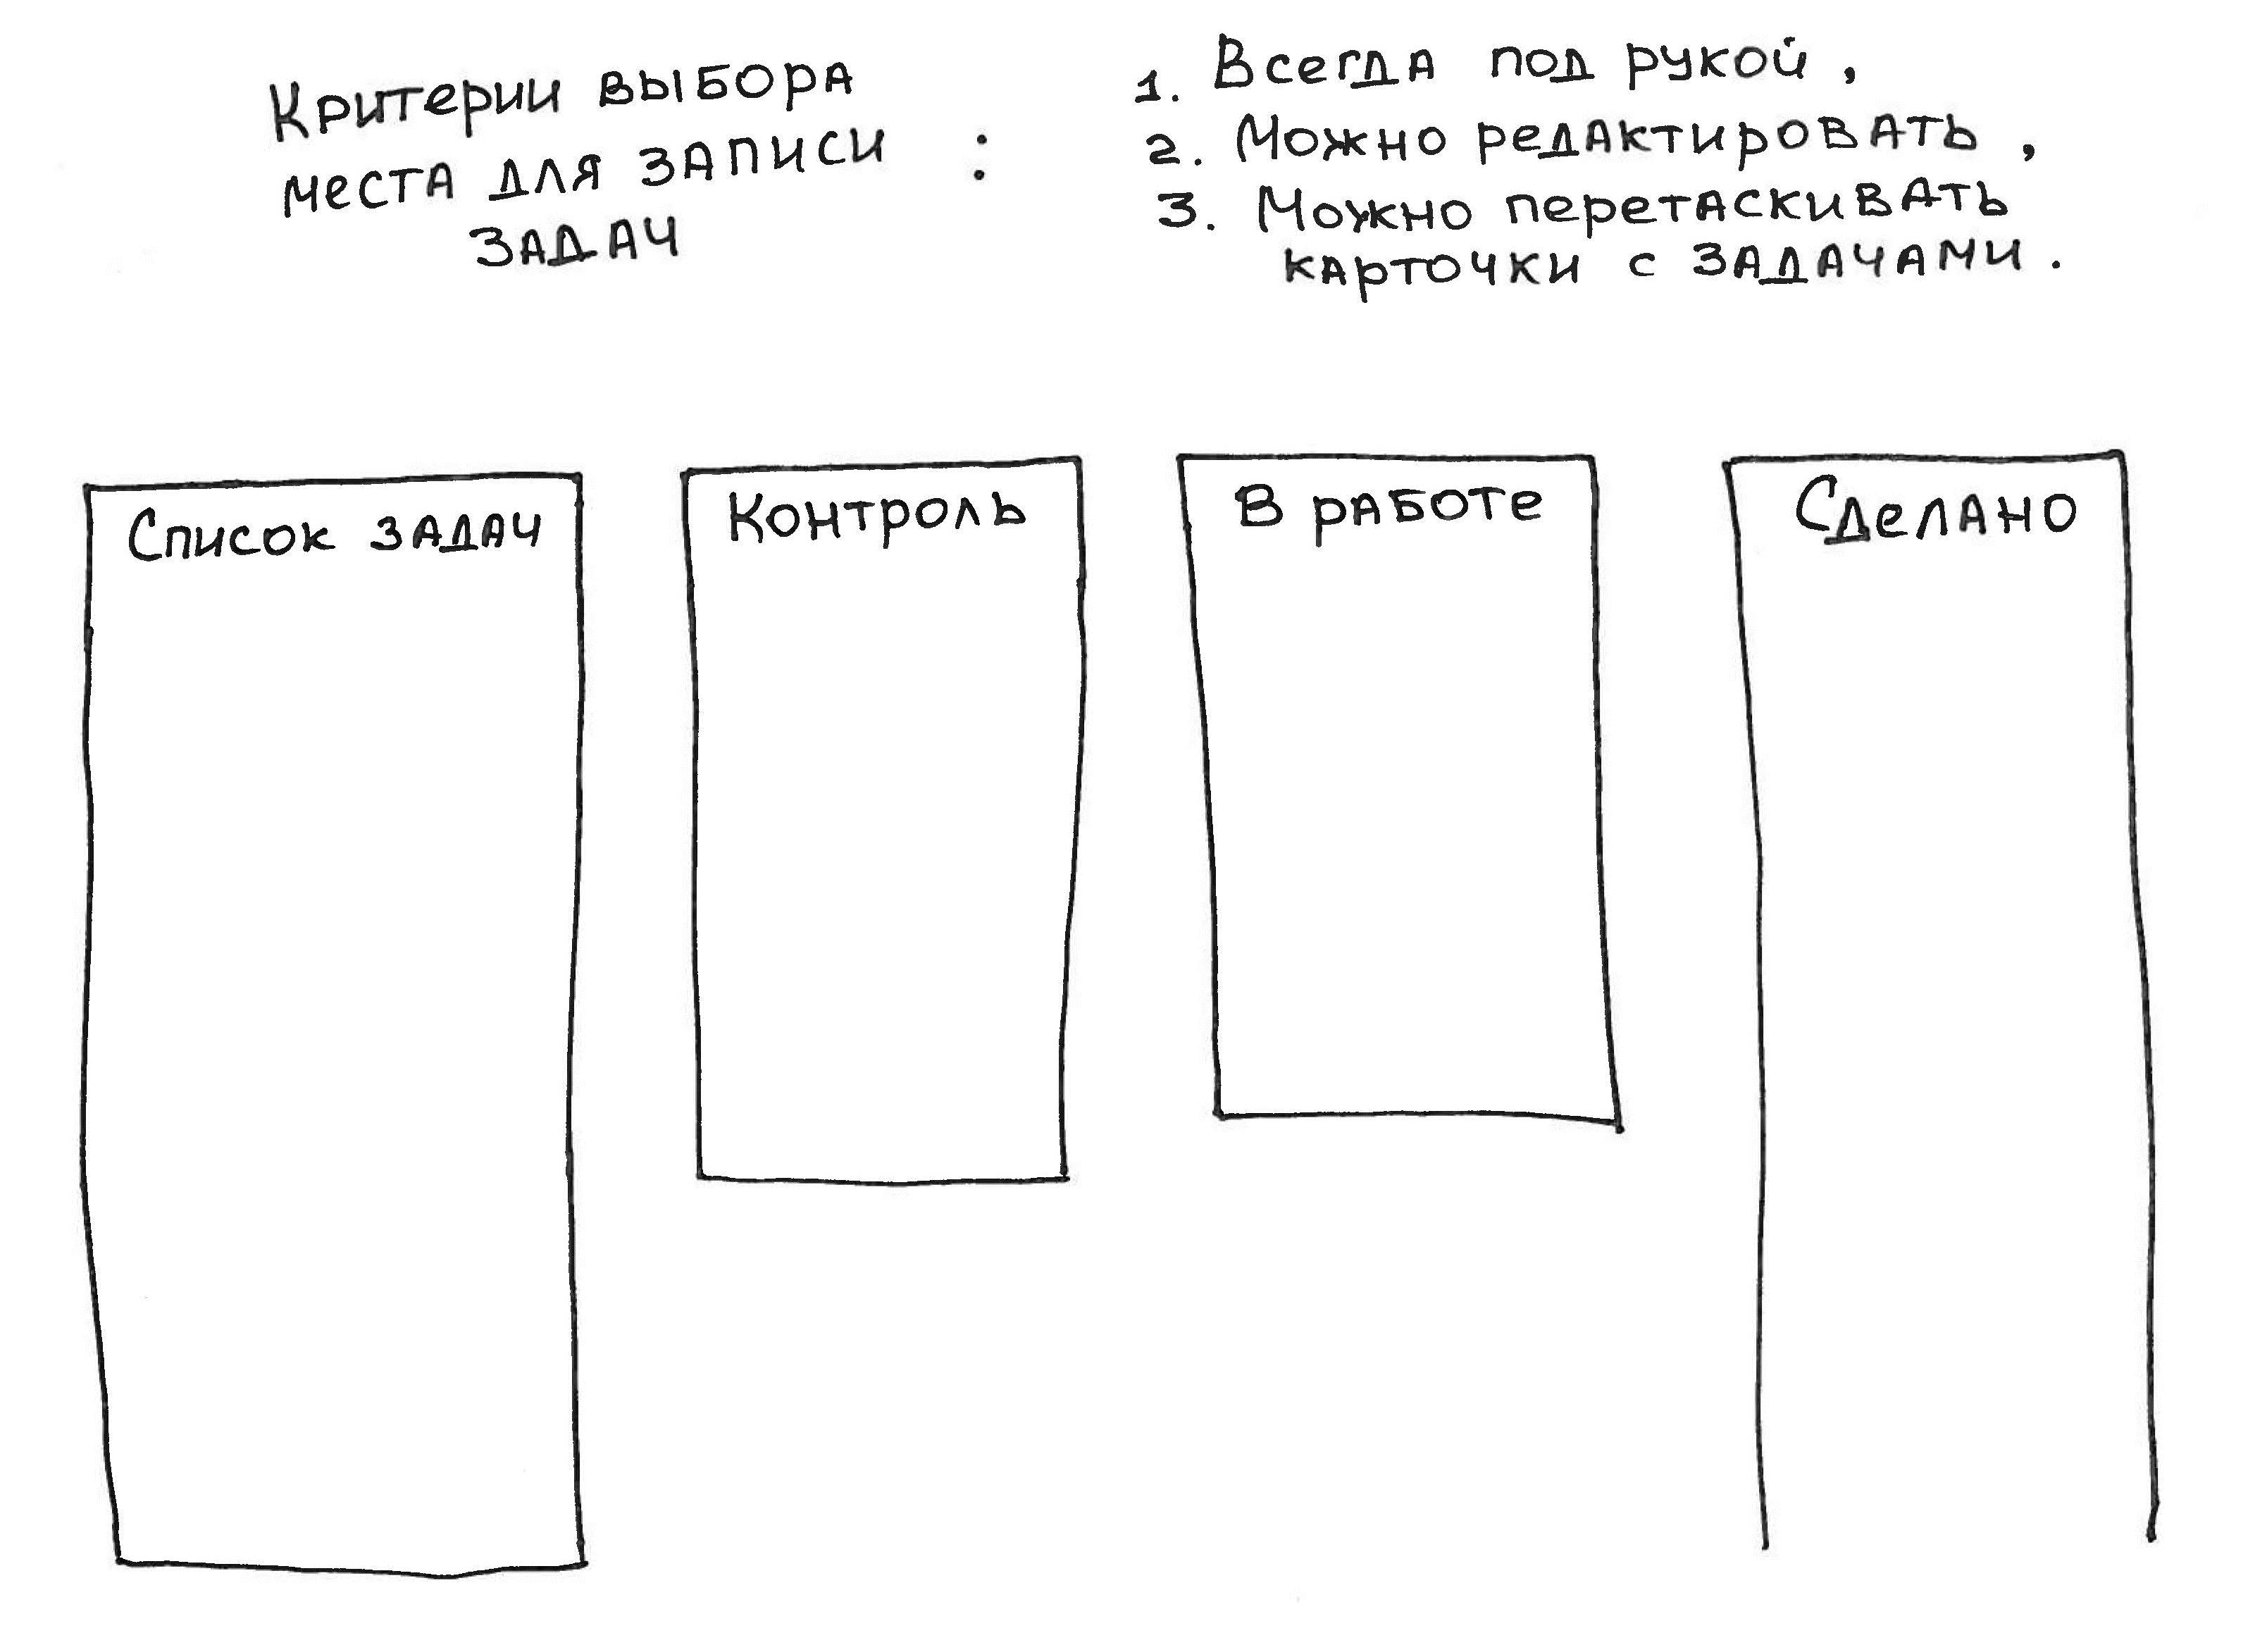 Критерии выбора
места для записи :
задач
1. Всегда под рукой,
2. Можно редактировать,
3. Можно перетаскивать
карточки с задачами.
Список задач
Контроль
В работе
Сделано